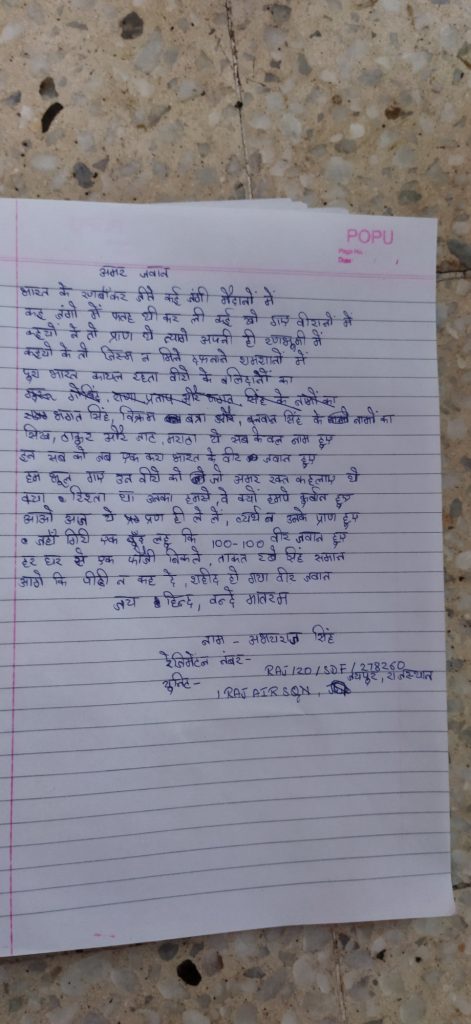 POPU
Page No.
Date / /
अमर जवान
भारत के रणबांकर जीते कई जंगी मैदानों में
कई जंगों में फतह थी कर ली कई खो गए वीरानों में
कइयों ने तो प्राण थे त्यागे अपनी ही रणभूमी में
कइयो के तो जिस्म न मिले दफनाने शमशानों में
पूरा भारत कायल रहता वीरो के बलिदानों का
गोबिंद, राणा प्रताप और भगत सिंह के नामों का
भगत सिंह, विक्रम बत्रा और, बलवंत सिंह के नामों का
सिख, ठाकुर और जाट, मराठा ये सब केवल नाम हुए
इन सब को जब एक करा भारत के वीर जवान हुए
हम भूल गए उन वीरो को जो अमर रक्त कहलाए थे
क्या रिश्ता था उनका हमसे, वे क्यों हमपे कुर्बान हुए
आओ आज ये प्रण ही ले लें, व्यर्थ न उनके प्राण हुए
जहाँ गिरे एक बूँद लहू कि 100-100 वीर जवान हुए
हर घर से एक फौजी निकले, ताकत रखे सिंह समान
आगे कि पीढी न कह दे, शहीद हो गया वीर जवान
जय हिन्द, वन्दे मातरम
नाम - अभयराज सिंह
रेजिमेंटन नंबर- RAJ/20/SDF/278260
युनिट- 1 RAJ AIR SQN, जयपुर, राजस्थान